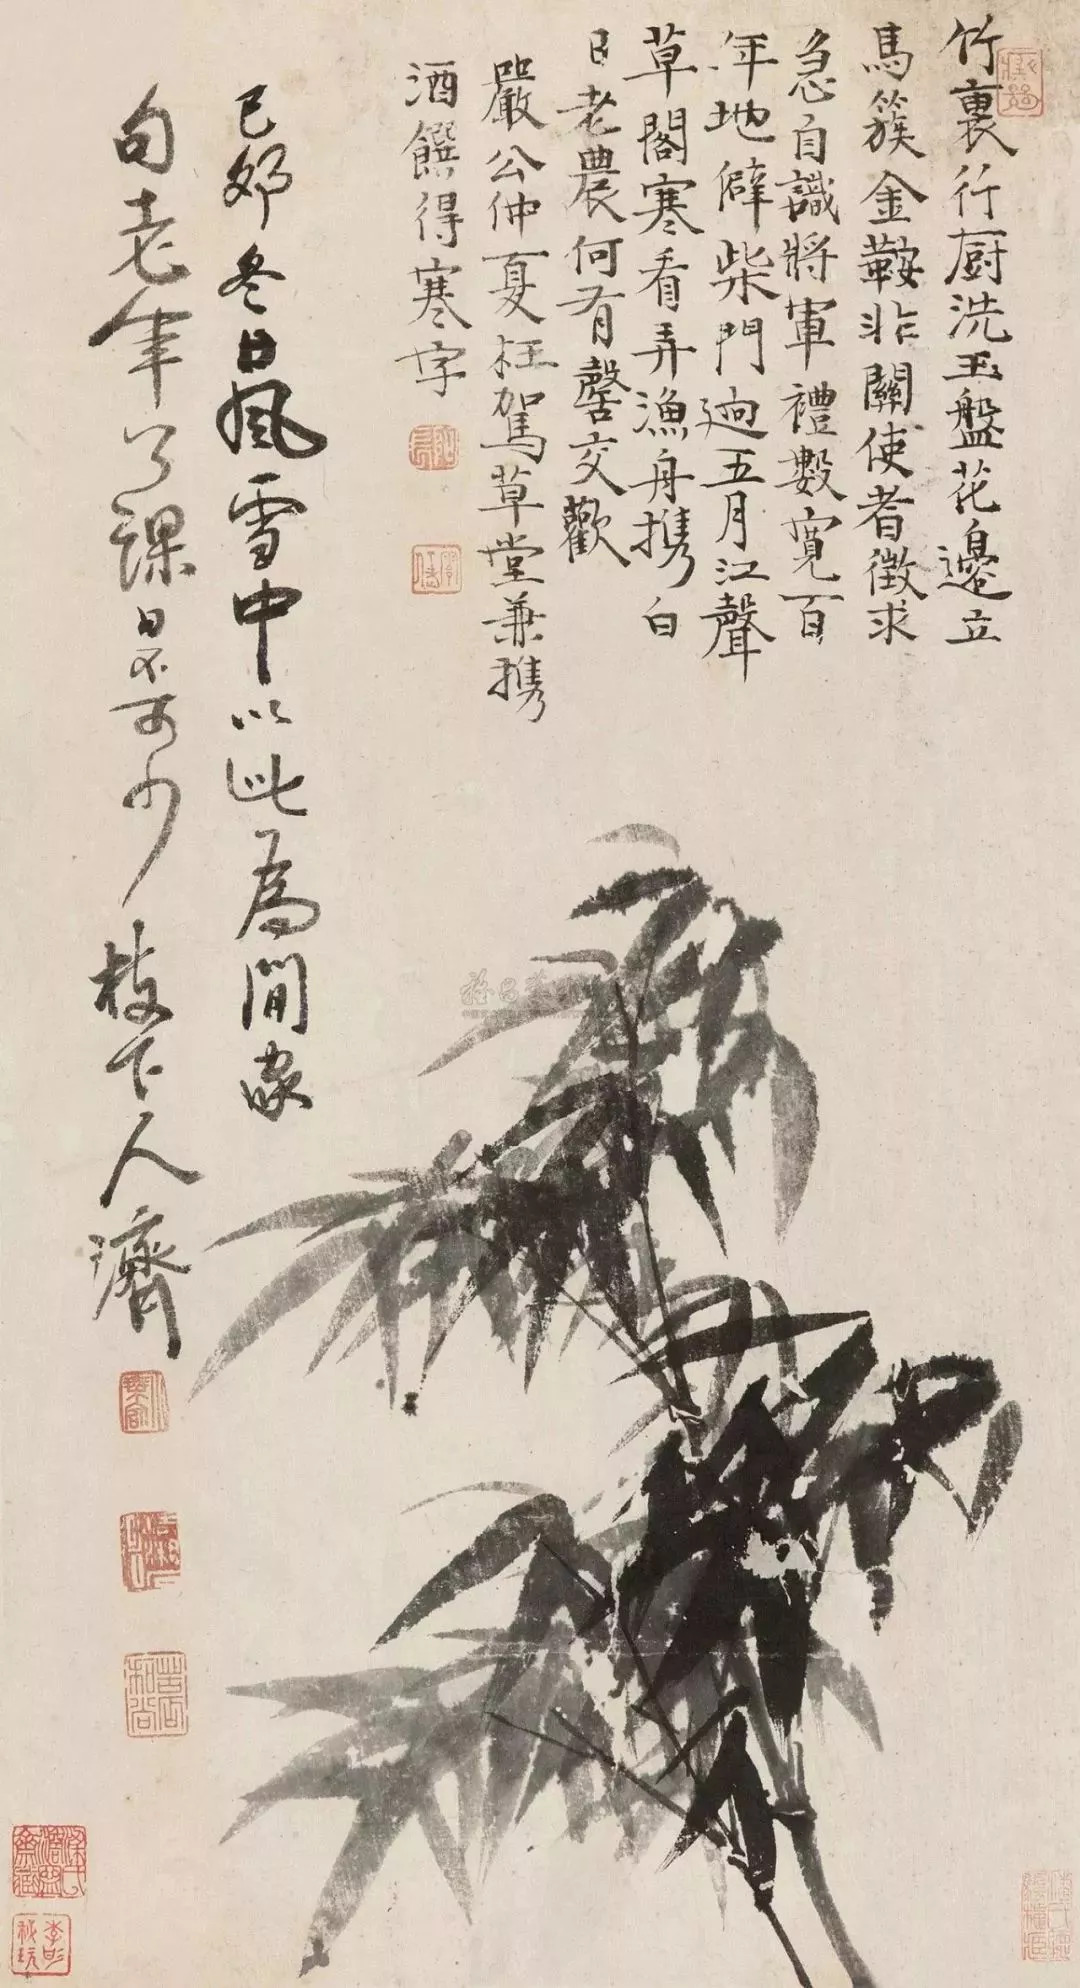 竹裏行厨洗玉盤花邊立
馬簇金鞍非關使者徵求
急自識將軍禮數寬百
年地僻柴門迥五月江聲
草閣寒看弄漁舟携白
日老農何有罄交歡
嚴公仲夏枉駕草堂兼携
酒饌得寒字
己卯冬日風雪中以此為閒
句老年了課日不可少枝下人濟